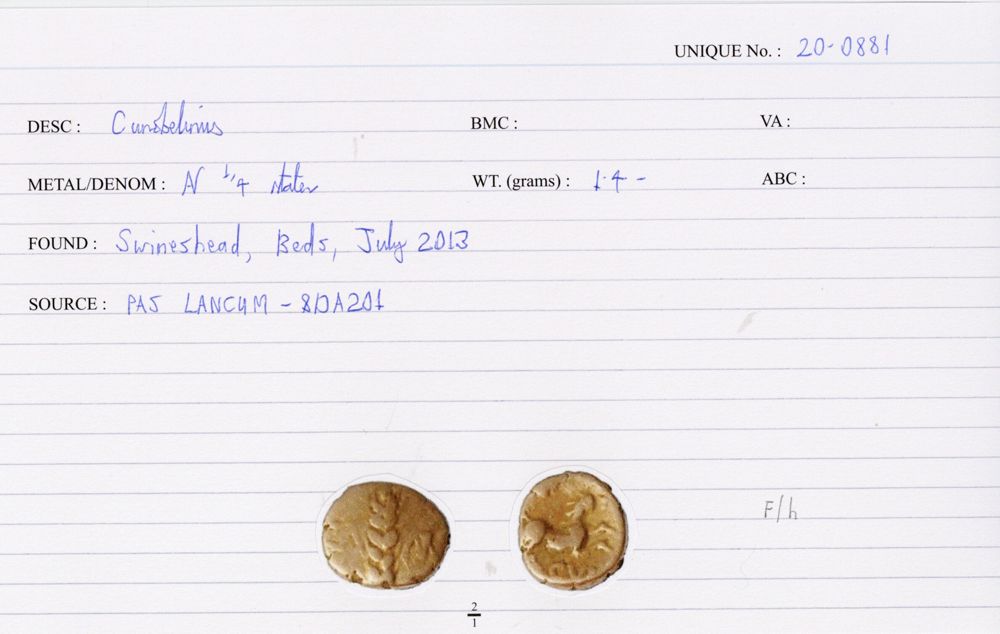 UNIQUE No. : 20-0881
DESC : Cunobelinus BMC : VA :
METAL/DENOM : AV 1/4 stater WT. (grams) : 1.4 - ABC :
FOUND : Swineshead, Beds, July 2013
SOURCE : PAS LANCUM - 8DA201
F/h
2
1